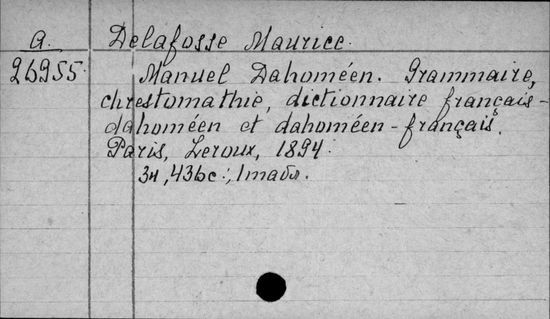 a. Delafosse Maurice.
26955. Manuel Dahoméen. Grammaire,
chrestomathie, dictionnaire français-
dahoméen et dahoméen-français.
Paris, Leroux, 1894.
3н, 436с., 1табл.